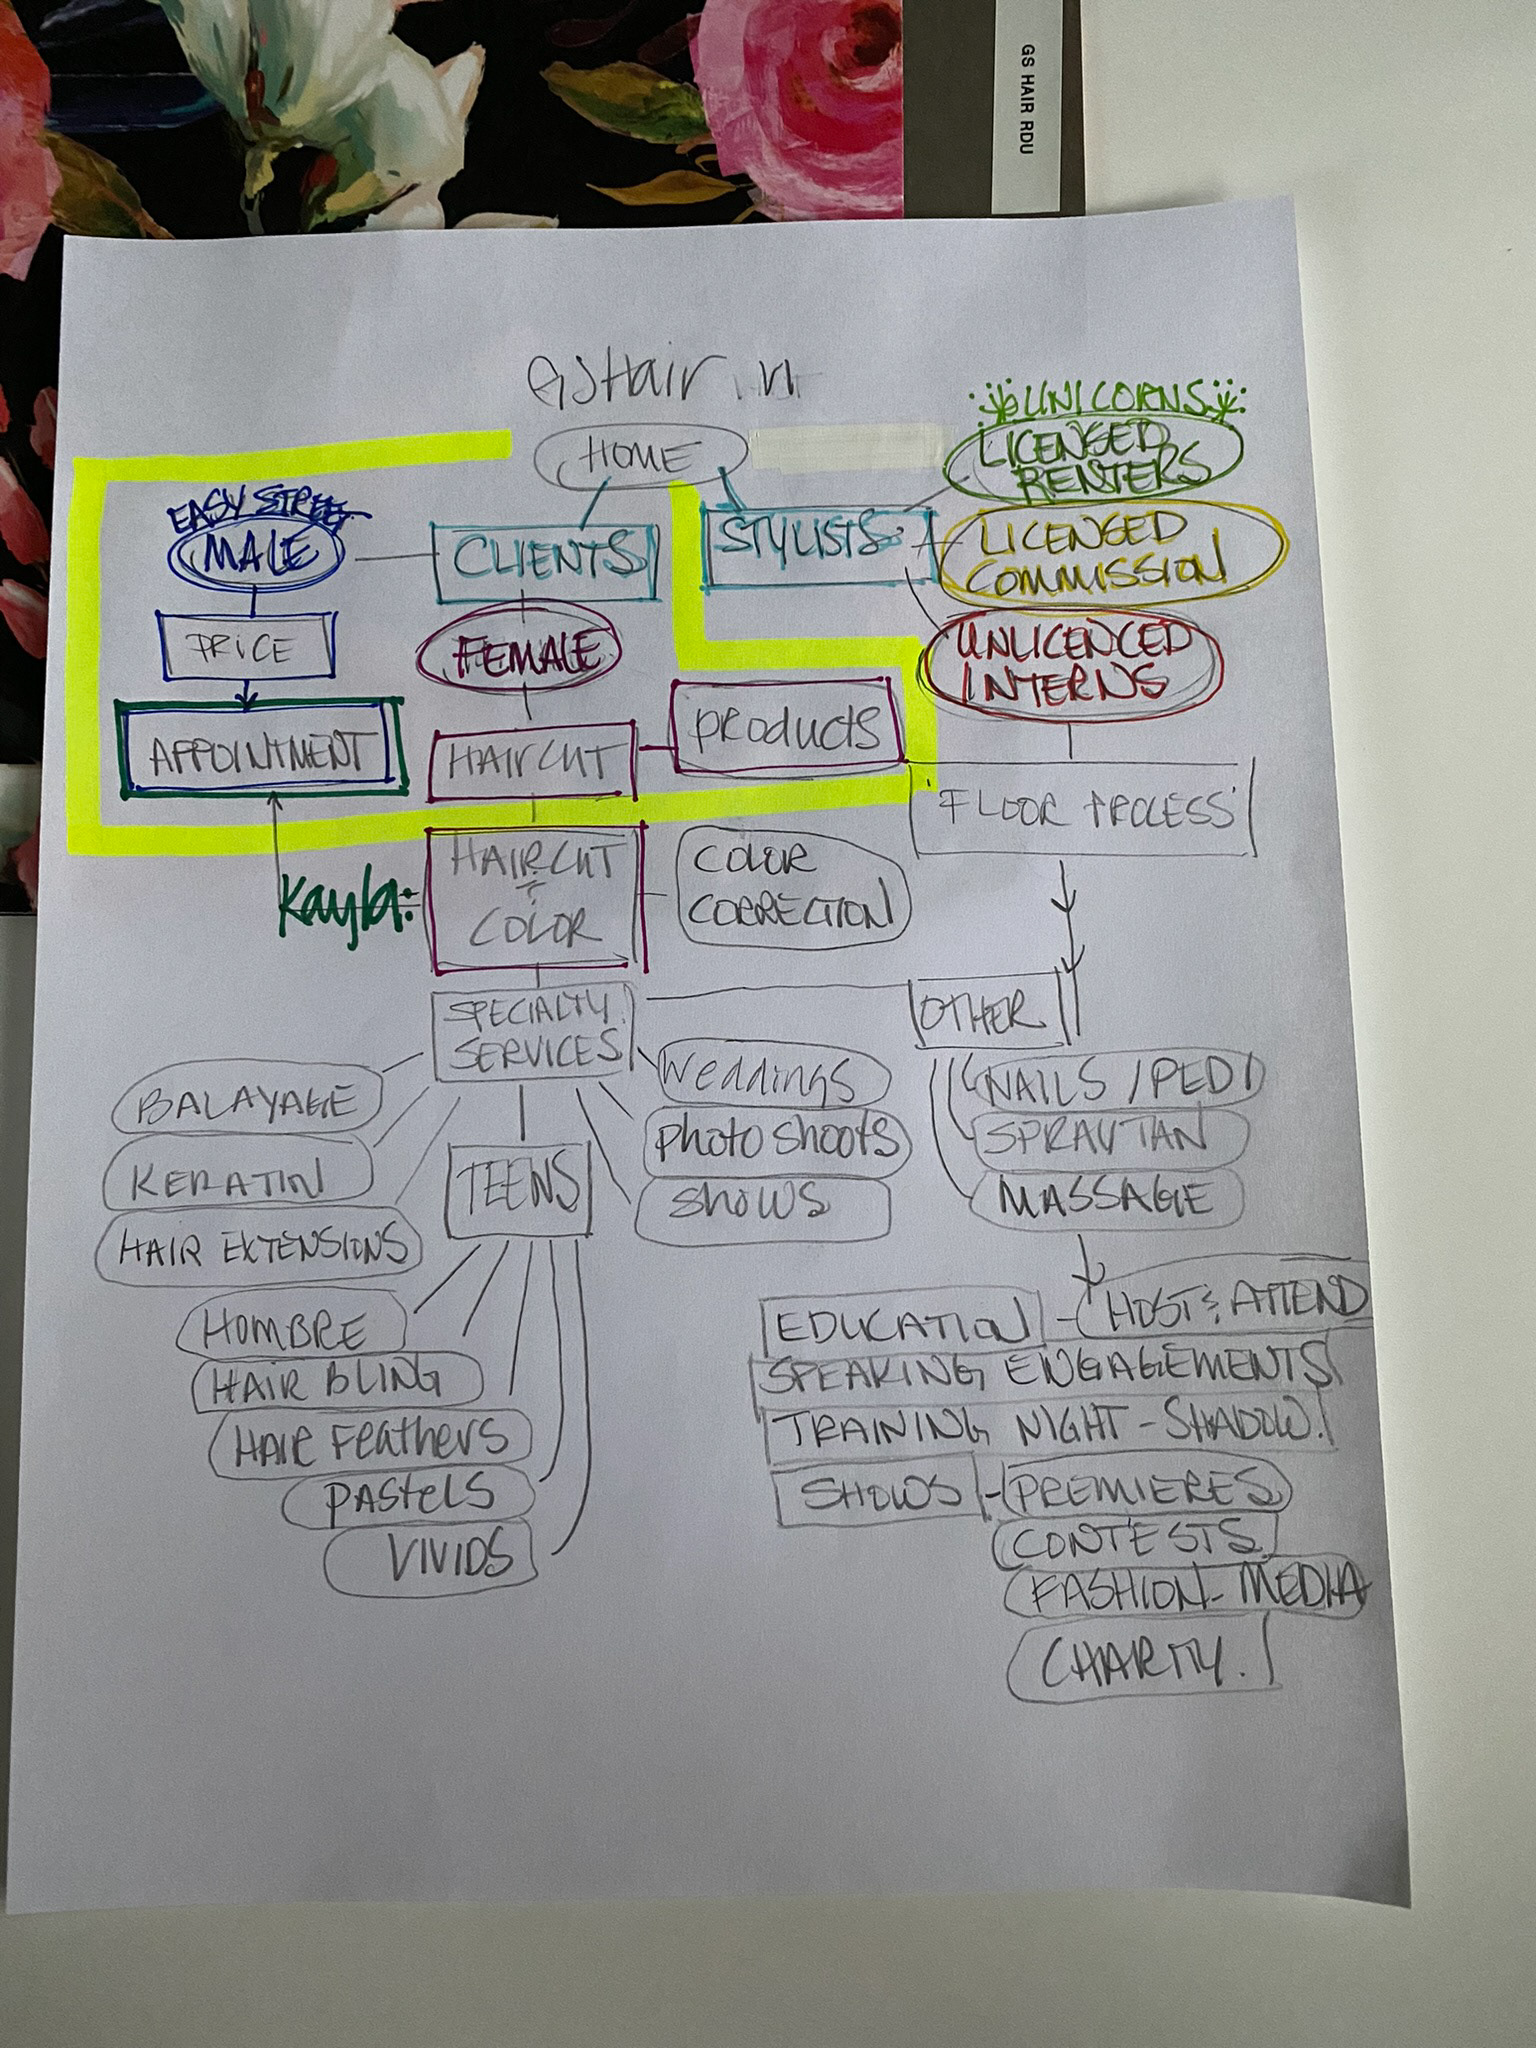 GS HAIR RDU
GSHair
HOME
UNICORNS
LICENSED
RENTERS
EASY STREET
MALE
CLIENTS
STYLISTS
LICENSED
COMMISSION
PRICE
FEMALE
UNLICENCED
INTERNS
APPOINTMENT
HAIRCUT
PRODUCTS
FLOOR PROCESS
Kayla:
HAIRCUT
&
COLOR
COLOR
CORRECTION
SPECIALTY
SERVICES
OTHER
BALAYAGE
KERATIN
HAIR EXTENSIONS
TEENS
Weddings
Photo Shoots
Shows
NAILS / PEDI
SPRAY TAN
MASSAGE
HOMBRE
HAIR BLING
HAIR Feathers
PAStelS
VIVIDS
EDUCATION - HOST & ATTEND
SPEAKING ENGAGEMENTS
TRAINING NIGHT - SHADOW.
SHOWS - PREMIERES
CONTESTS
FASHION - MEDIA
CHARITY.